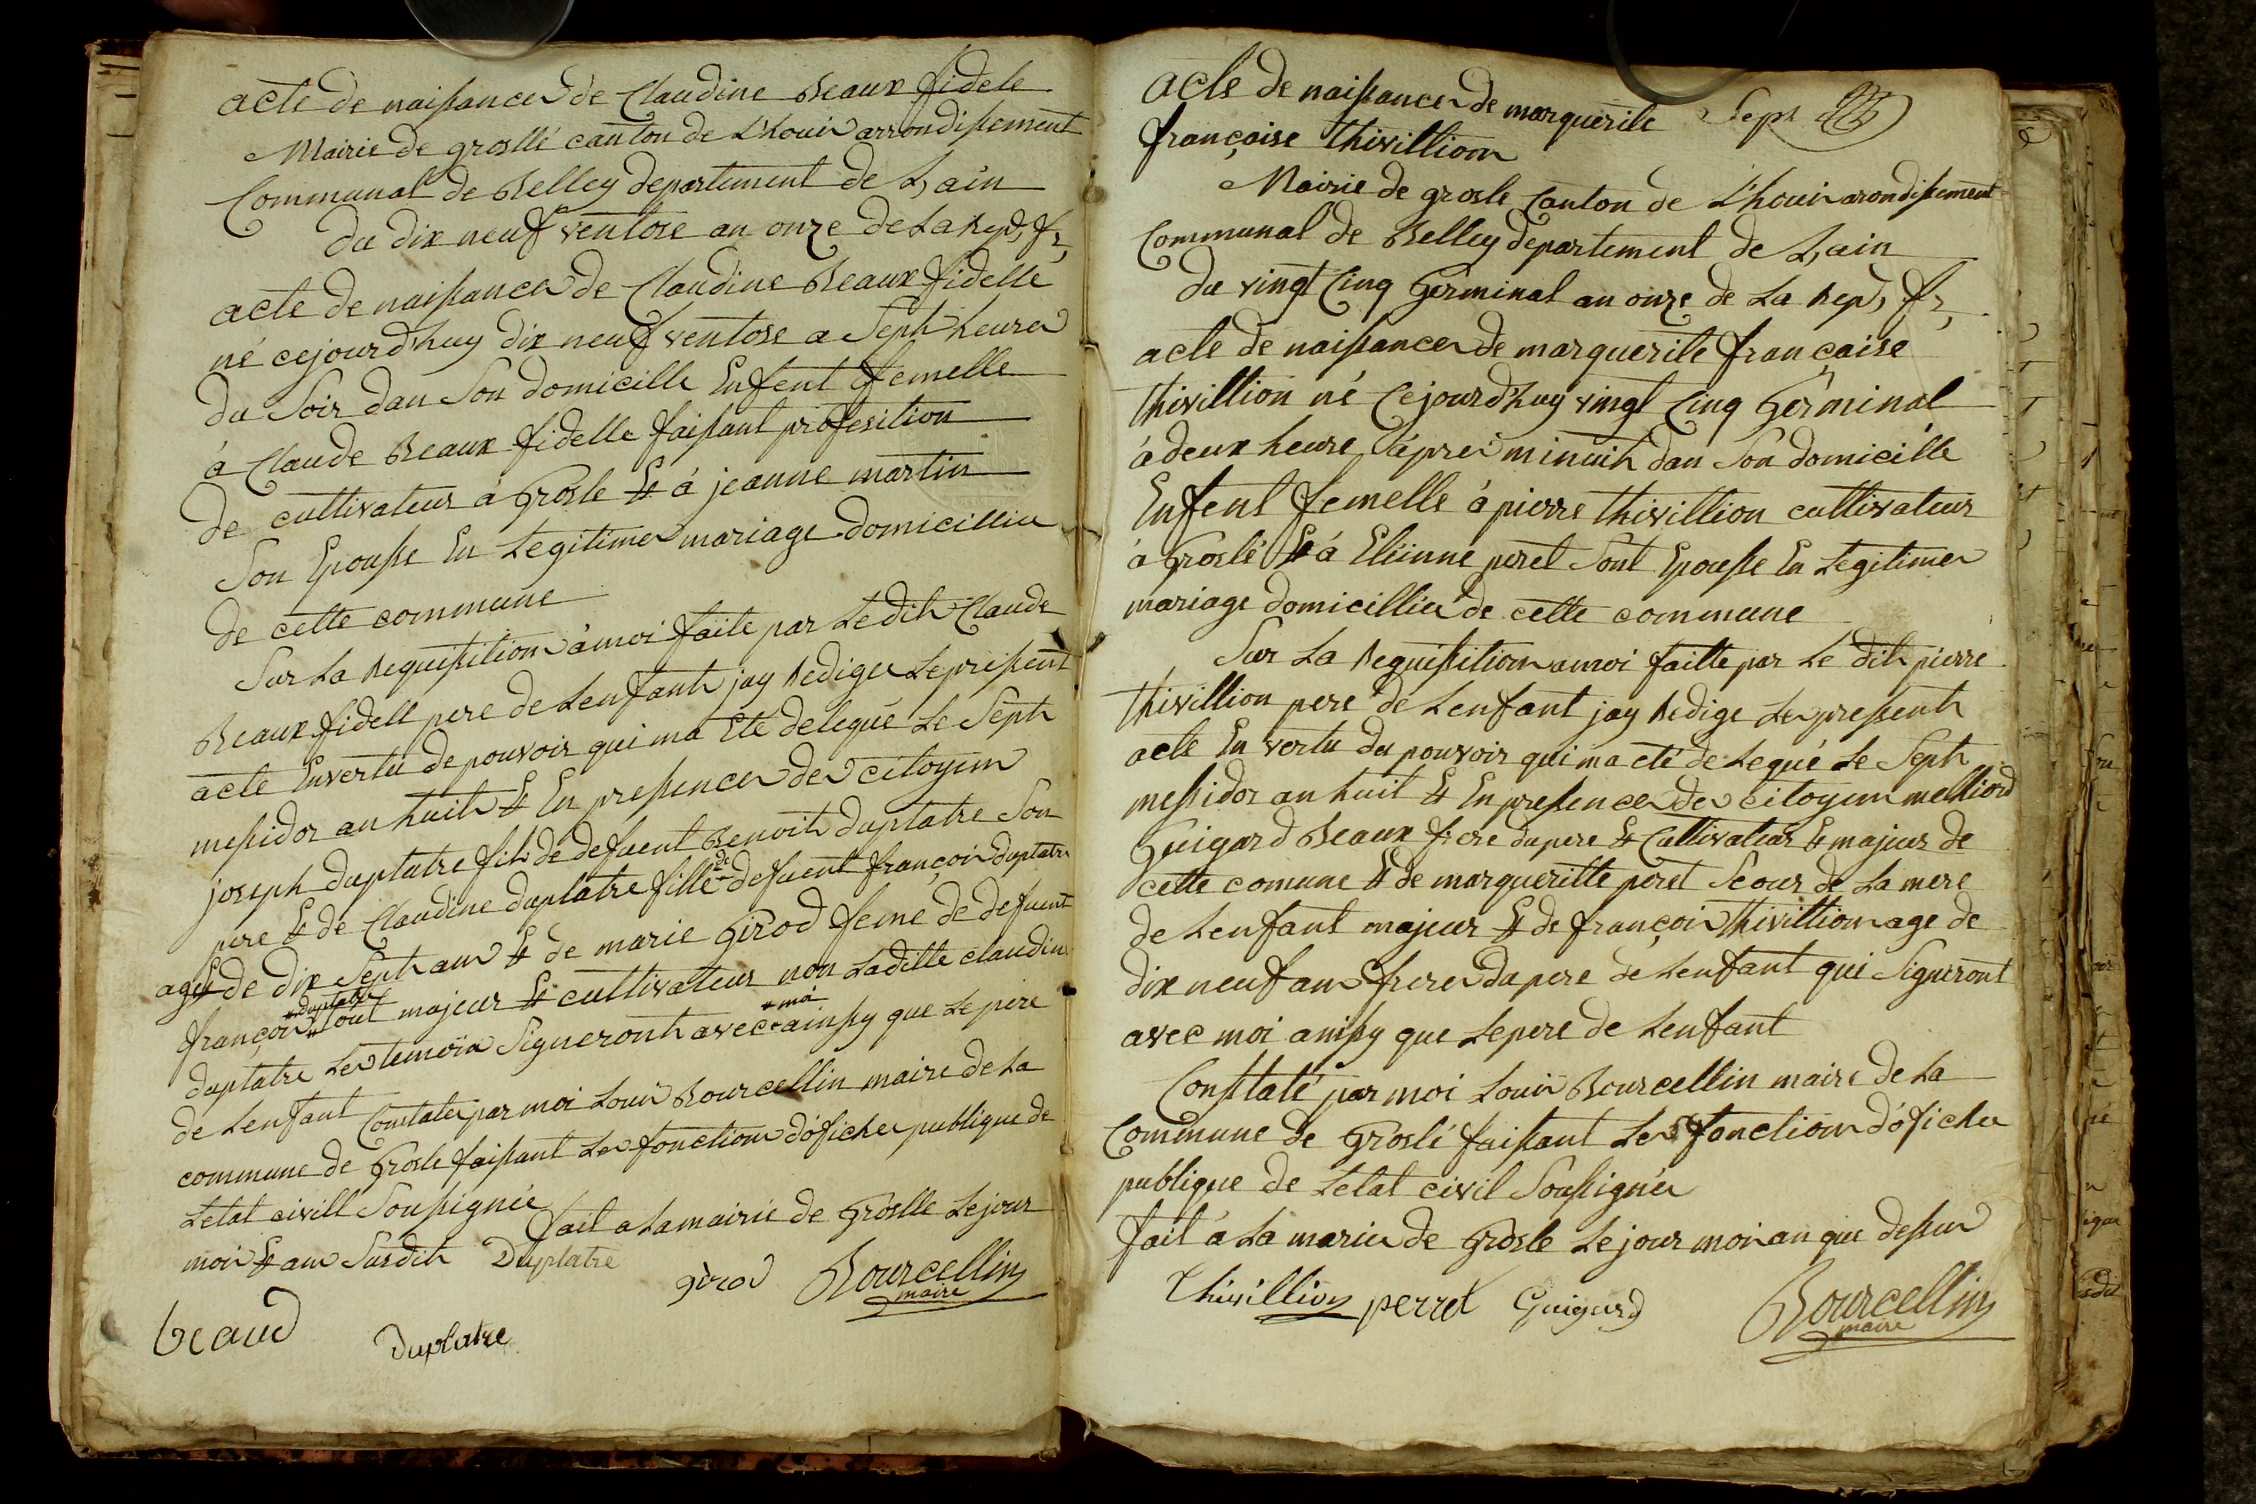 acte de naissance de Claudine Beaux fidele
Mairie de groslé canton de L'houis arrondissement
Communal de Belley departement de L,ain
du dix neuf ventose an onze de La Rep, fr,
acte de naissance de Claudine Beaux fidelle
né cejourd'huy dix neuf ventose a Sept heures
du Soir dans Son domicille Enfent femelle
á Claude Beaux fidelle faissant profesition
de cultivateur á Grosle Et á jeanne martin
Son Epousse En Legitime mariage domicilliée
de cette commune
Sur La Requissition á moi faite par Ledit Claude
Beaux fidell pere de Lenfant jay Rediger Lepressent
acte Envertu de pouvoir qui ma Eté delegué Le Sept
messidor an huit Et En pressence des citoyens
joseph duplatre fils de defuent Benoit duplatre Son
pere Et de Claudine duplatre fille de defuent françois duplatre
agée de dix Sept ans Et de marie Girod feme de defuent
françois duplatre tout majeur Et cultivateur non Laditte claudine
duplatre Les temoin Signeront avec moi ainssy que Le pere
de Lenfant Constater par moi Louis Bourcellin maire de La
commune de Grosle faissant Les fonctions d'óficher publique de
Letat civill Soussignée
fait a Lamairie de Groslle Lejour
mois Et an Susdit Duplatre
girod Bourcellin
maire
beaud
Duplatre
acte de naissance de marguerite Sept
françoise thivillion
Mairie de grosle Canton de L'houis arondissement
Communal de Belley departement de L,ain
du vingt Cinq Germinal an onze de La Rep, fr,
acte de naissance de marguerite françoise
thivillion né Cejourd'huy vingt Cinq Germinal
á deux heure áprei minuit dan Son domicille
Enfent femelle á pierre thivillion cultivateur
á Groslé Et á Etiinne peret Sont Epousse En Legitime
mariage domicilliée de cette commune
Sur La Requissition amoi faitte par Le dit pierre
thivillion pere de Lenfant jay Redige Le pressent
acte En vertu du pouvoir qui ma eté de Legué Le Sept
messidor an huit Et En pressence des citoyens
Guigard Beaux frere du pere Et Cultivateur Et majeur de
cette comune Et de margueritte peret Seour de La mere
de Lenfant majeur Et de françois thivillion age de
dix neuf ans frere du pere de Lenfant qui Signeront
avec moi ainssy que Lepere de Lenfant
Constaté par moi Louis Bourcellin maire de La
Commune de Groslé faissant Les fonction d'óficher
publique de Letat civil Soussignée
fait á La marie de Grosle Lejour mois an que dessus
Thivillion perret Guigard Bourcellin
maire